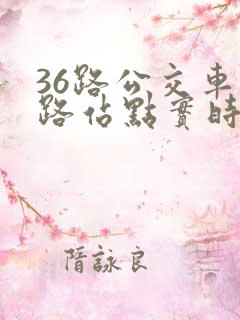 36路公交車
路佔點實時
隋詠良